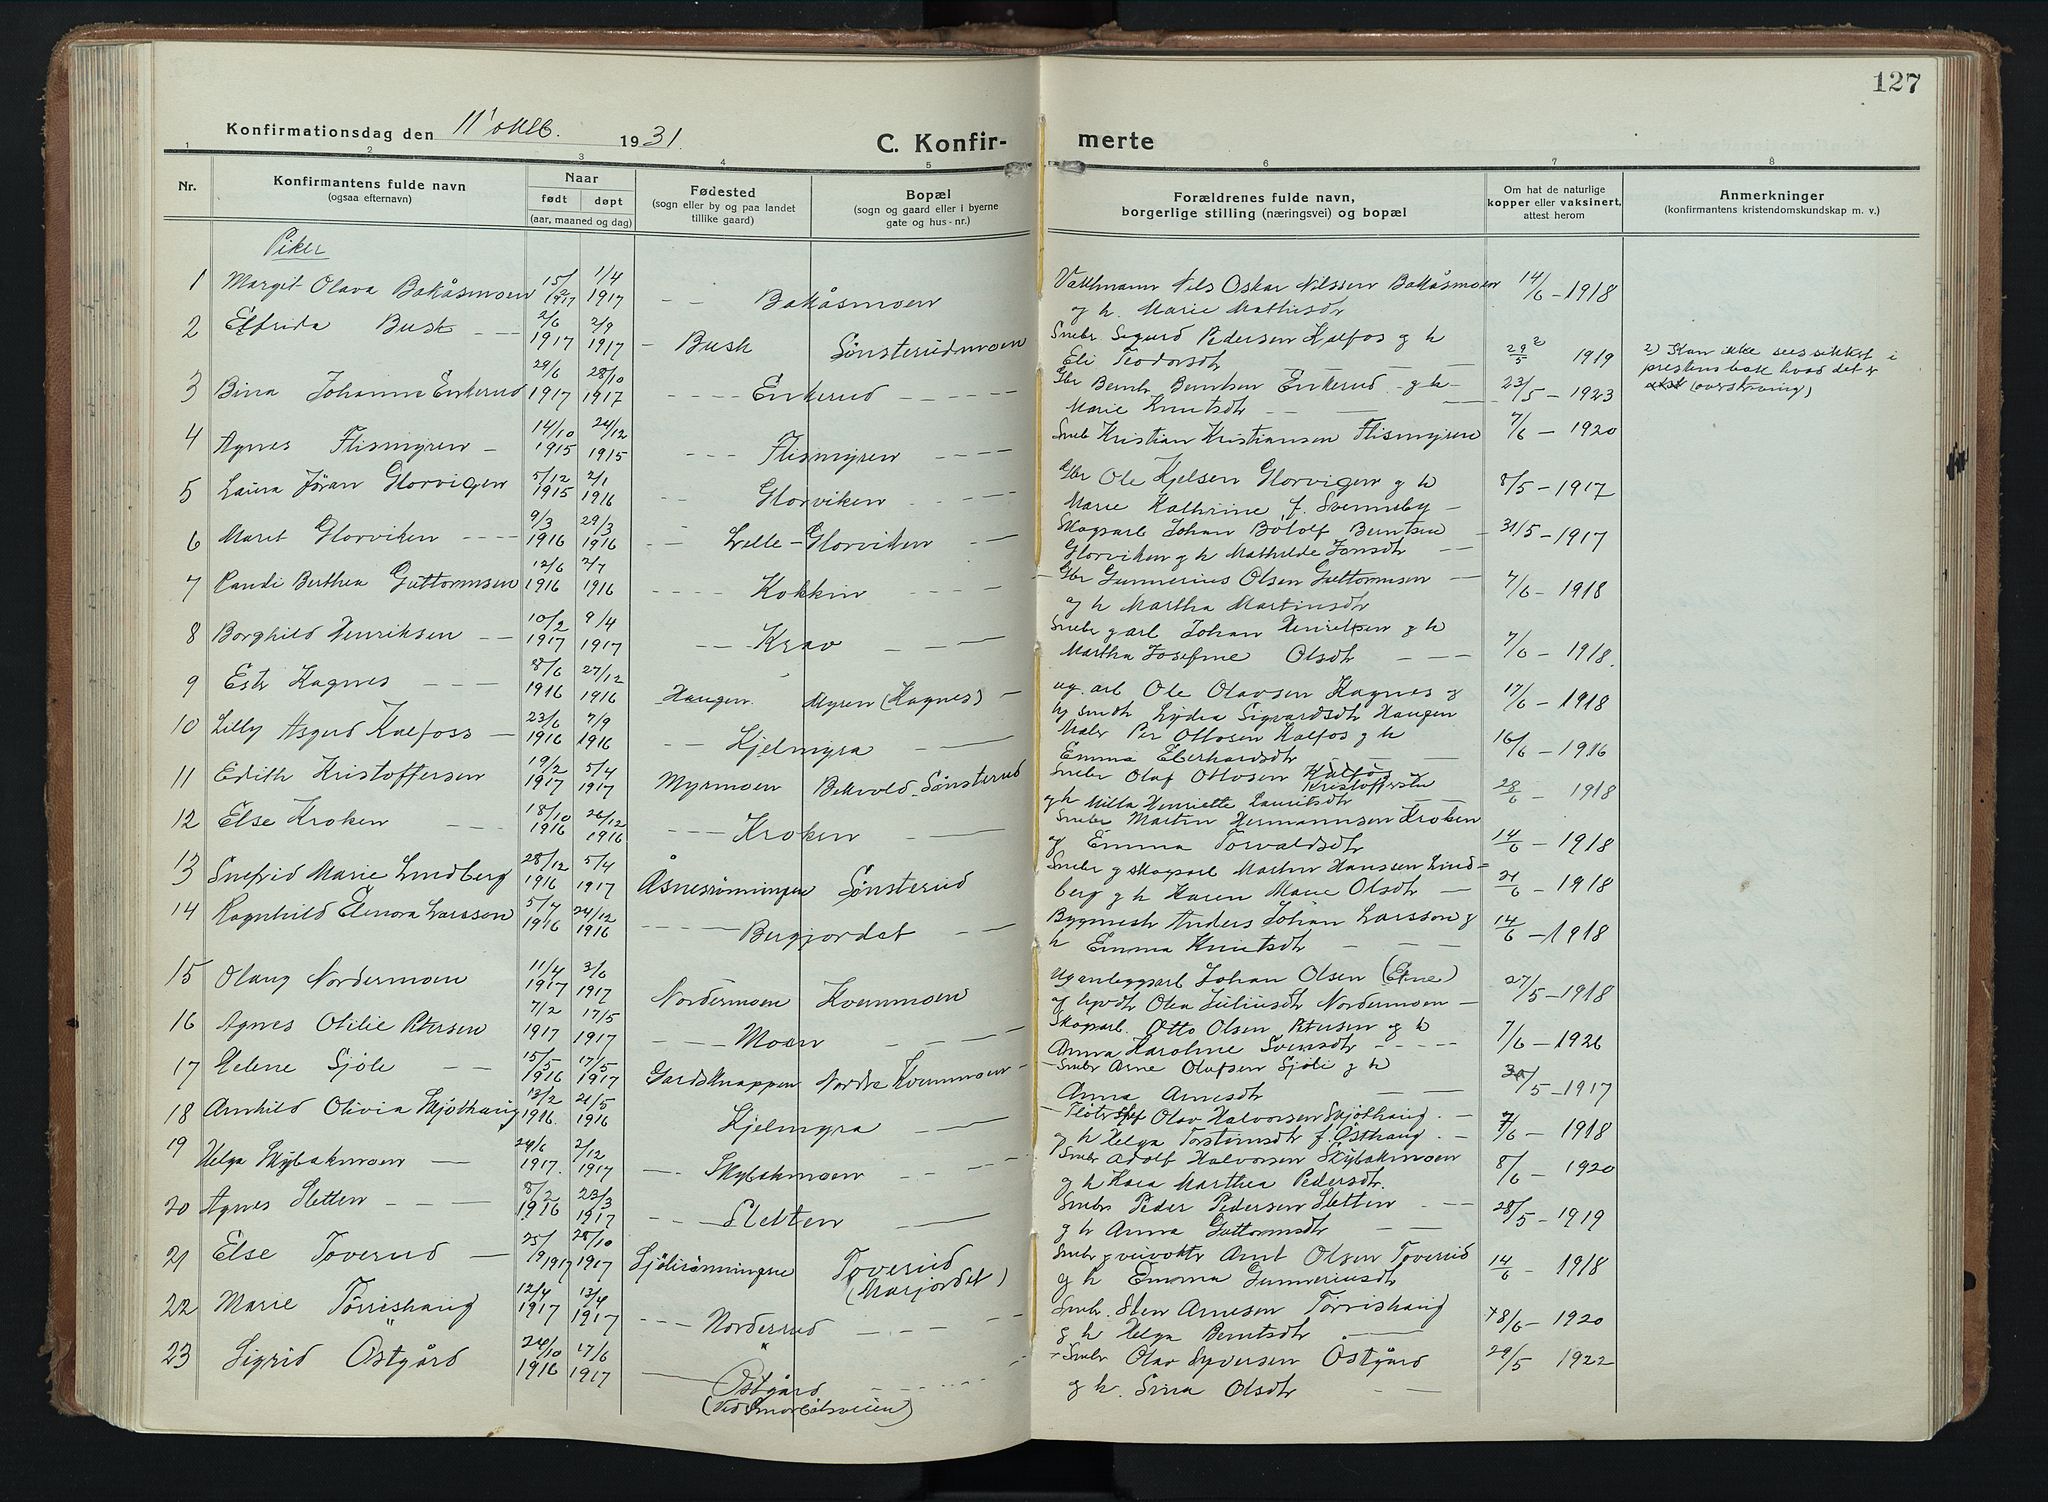 127
Konfirmationsdag den 11' oktb. 1931.
C. Konfir-merte
1 2 3 4 5 6 7 8
Nr.
Konfirmantens fulde navn
(ogsaa efternavn)
Naar
født døpt
(aar, maaned og dag)
Fødested
(sogn eller by og paa landet
tillike gaard)
Bopæl
(sogn og gaard eller i byerne
gate og hus-nr.)
Forældrenes fulde navn,
borgerlige stilling (næringsvei) og bopæl
Om hat de naturlige
kopper eller vaksinert,
attest herom
Anmerkninger
(konfirmantens kristendomskundskap m. v.)
Piker
1 Margit Olava Bakåsmoen 15/2 1917 1/4 1917 - - Bakåsmoen Nils Oskar Nilssen Bakåsmoen 14/6 - 1918
og h. Marie Mathisdtr
2 Elfrida Busk - - 2/6 1917 2/9 1917 - Busk Sønsterudmoen Smbr Sigurd Pedersen Kalfos g h 29/5 2 1919 2) Kan ikke sees sikkert i
Eli Teodorsdtr prestens bok hvad det er
3 Bina Johanne Enkerud 29/6 1917 28/10 1917 - - - - Enkerud - - - - Gbr Bernt Berntsen Enkerud - g h - 23/5 - 1923 (overskriving)
Marie Knutsdtr - -
4 Agnes Flismyren - 14/10 1915 24/12 1915 - - - Flismyren - - - - Smbr Kristian Kristiansen Flismyren 7/6 - 1920
5 Laura Jøran Glorvigen 5/12 1915 2/1 1916 - - Glorviken - - - Gbr Ole Kjelsen Glorvigen g h 8/5 - 1917
Marie Kathrine f. Svenneby -
6 Maret Glorviken - - - - 9/3 1916 29/3 1916 - - Lille-Glorviken - - Skogsarb Johan Botolf Berntsen 31/5 - 1917
Glorviken g h Mathilde Jonsdtr - -
7 Randi Berthea Guttormsen 12/6 1916 2/7 1916 - - - - Kokkin - - - - - Gbr Gunnerius Olsen Guttormsen - 7/6 - 1918
og h Martha Martinsdtr
8 Borghild Henriksen - - 10/2 1917 9/4 1917 - - - Krav - - - Smbr g arb Johan Henriksen g h 7/6 - 1918.
Martha Josefine Olsdtr - - -
9 Estr Kagnes - - - 8/6 1916 27/12 1916 Haugen Myren (Kagnes) - ug. arb Ole Olavsen Kagnes g 17/6 - 1918
Lydia Sigvardsdtr Haugen
10 Lilly Asgerd Kalfoss - 23/6 1916 7/9 1916 - - Kjelmyra - - Maler Per Ottosen Kalfos g h 16/6 - 1916
Emma Eberhardsdtr -
11 Edith Kristoffersen 19/2 1917 5/4 1917 Myrmoen Bekvold-Sønsterud Smbr Olaf Ottosen Kalfos Kristoffersen 28/6 - 1918
g h Milla Henriette Lauritsdtr -
12 Else Kroken - - - 18/10 1916 26/12 1916 - - - Kroken - - Smbr Martin Hermannsen Kroken 14/6 - 1918
og Emma Torvaldsdtr
13 Snefrid Marie Lindberg 28/12 1916 5/4 1917 Åsnesrønningen Sønsterud Smbr g skogsarb Martin Hanssen Lind= 21/6 - 1918
berg g h Karen Marie Olsdtr -
14 Ragnhild Elenora Larsson 5/7 1916 24/12 1916 - - - - Bergjordet - - Bygmestr Anders Johan Larsson g 14/6 - 1918
h Emma Knutsdtr - - -
15 Olaug Nordermoen 11/4 1917 3/6 1917 Nordermoen Kvernmoen Ug anleggsarb Johan Olsen 27/5 - 1918
og Olea Juliusdtr Nordermoen -
16 Agnes Otilie Petersen 7/2 1917 17/5 1917 - - - Moen - - - Skogsarb. Otto Olsen Petersen og h 7/6 - 1926
Anna Karoline Svensdtr - - - -
17 Helene Sjøle - - 15/5 1916 17/5 1917 Gardsknappen Nordre Kvernmoen - - Smbr Arne Olafsen Sjøle g h 30/5 - 1917
Anna Arnesdtr - -
18 Arnhild Olivia Skjøthaug 13/2 1916. 21/5 1916 Kjelmyra - - - Fløter Olav Halvorsen Skjøthaug. - 7/6 - 1918
og h Helga Torsteinsdtr f. Østhaug. -
19 Helga Skybakmoen - 24/6 1917. 2/12 1917 - - Skybakmoen - - - Smbr Adolf Halvorsen Skybakmoen 8/6 - 1920
g h Kaia Marthea Pedersdtr.
20 Agnes Sletten - - - 8/2 1916 23/3 1917 - - - Sletten - - Smbr Peder Pedersen Sletten - - 28/5 - 1919
g h Anna Guttormsdtr - -
21 Else Toverud - 25/9 1917 28/10 1917 Sjølisrønningene Toverud (Marjordet) Smbr g veivoktr Arnt Olsen Toverud 14/6 - 1918
g h Emma Gunneriusdtr
22 Marie Tørrishaug 12/4 1917 13/4 1917 - - - Norderud - - - - - Smbr. Sten Arnesen Tørrishaug 8/6 - 1920
g h Helga Berntsdtr -
23 Sigrid Østgård 24/10 1916 17/6 1917 Østgård - - - - - Smbr Olav Syversen Østgård 29/5 1922
g h. Sina Olsdtr - -